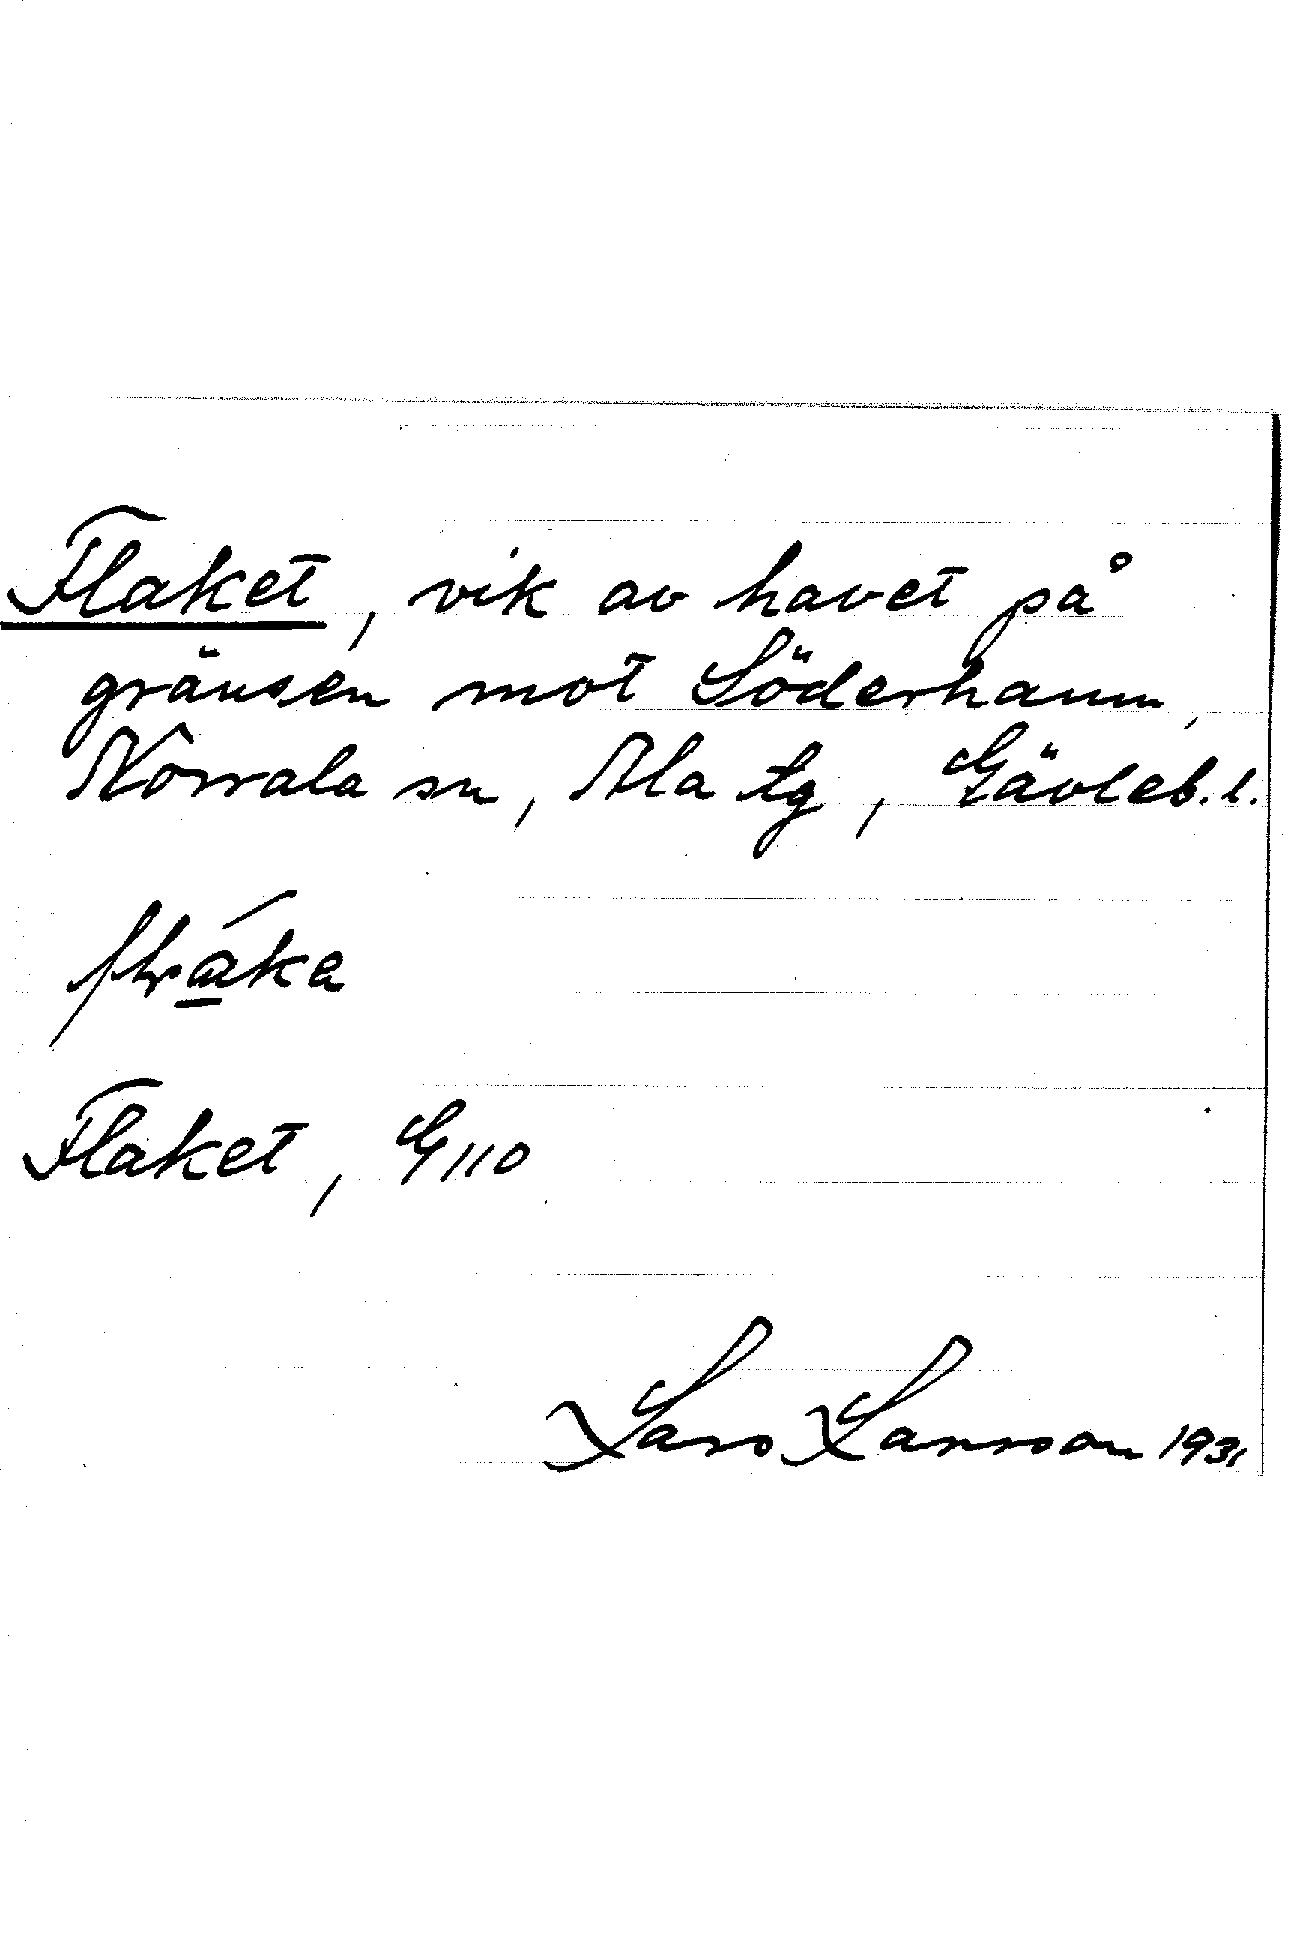 Flaket, vik av havet på
gränsen mot Söderhamn,
Norrala sn, Ala tg, Gävleb. l.
Flaket, G110
Lars Larsson 1931